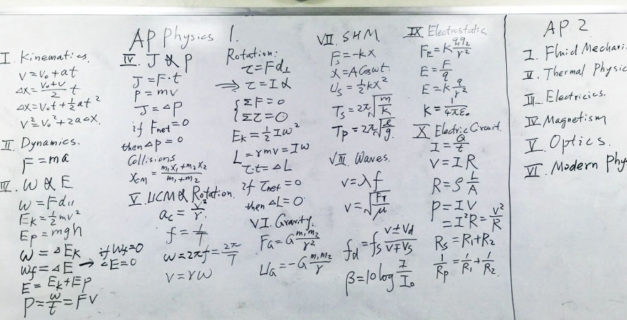 AP Physics 1.
I. Kinematics.
v = v₀ + at
Δx = (v₀+v)/2 t
Δx = v₀t + ½at²
v² = v₀² + 2aΔx.
II Dynamics.
F = ma
W & E
W = Fd∥
E_k = ½mv²
E_p = mgh
W = ΔE_k
W_f = ΔE → if W_f = 0 ΔE = 0
E = E_k + E_p
P = W/t = FV
IV. J & P
J = F·t
P = mv
J = ΔP
if F_net = 0
then ΔP = 0
Collisions
x_cm = (m₁x₁+m₂x₂)/(m₁+m₂)
V UCM & Rotation.
a_c = v²/r
f = 1/T
ω = 2πf = 2π/T
v = rω
Rotation:
τ = Fd⊥
⇒ τ = Iα
{ΣF = 0
Στ = 0
E_k = ½Iω²
L = rmv = Iω
τt = ΔL
if τ_net = 0
then ΔL = 0
VI. Gravity.
F_G = G m₁m₂/r²
U_G = -G m₁m₂/r
VII. SHM
F_s = -kx
x = A cos ωt
U_s = ½kx²
T_s = 2π√(m/k)
T_p = 2π√(l/g)
VIII Waves.
v = λf
v = √(F_T/μ)
f_d = f_s (v±v_d)/(v∓v_s)
β = 10 log I/I₀
IX Electrostatic
F_E = k q₁q₂/r²
E = F/q
E = k q/r²
k = 1/4πε₀
X Electric Circuit.
I = Q/t
V = IR
R = ρ L/A
P = IV
= I²R = V²/R
R_s = R₁ + R₂
1/R_p = 1/R₁ + 1/R₂
AP 2
I. Fluid Mechani
II. Thermal Physic
III. Electricics.
IV. Magnetism
V. Optics.
VI. Modern Phy